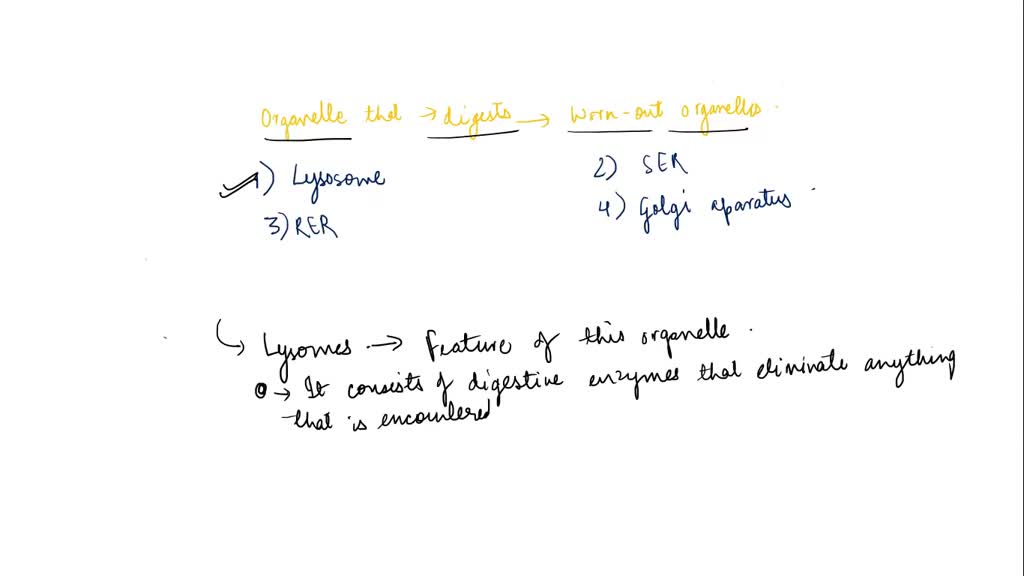 Organelle that → digests → Worn-out organelles.
1) Lysosome 2) SER
3) RER 4) Golgi aparatus
Lysomes → feature of this organelle.
→ It consists of digestive enzymes that eliminate anything
that is encountered